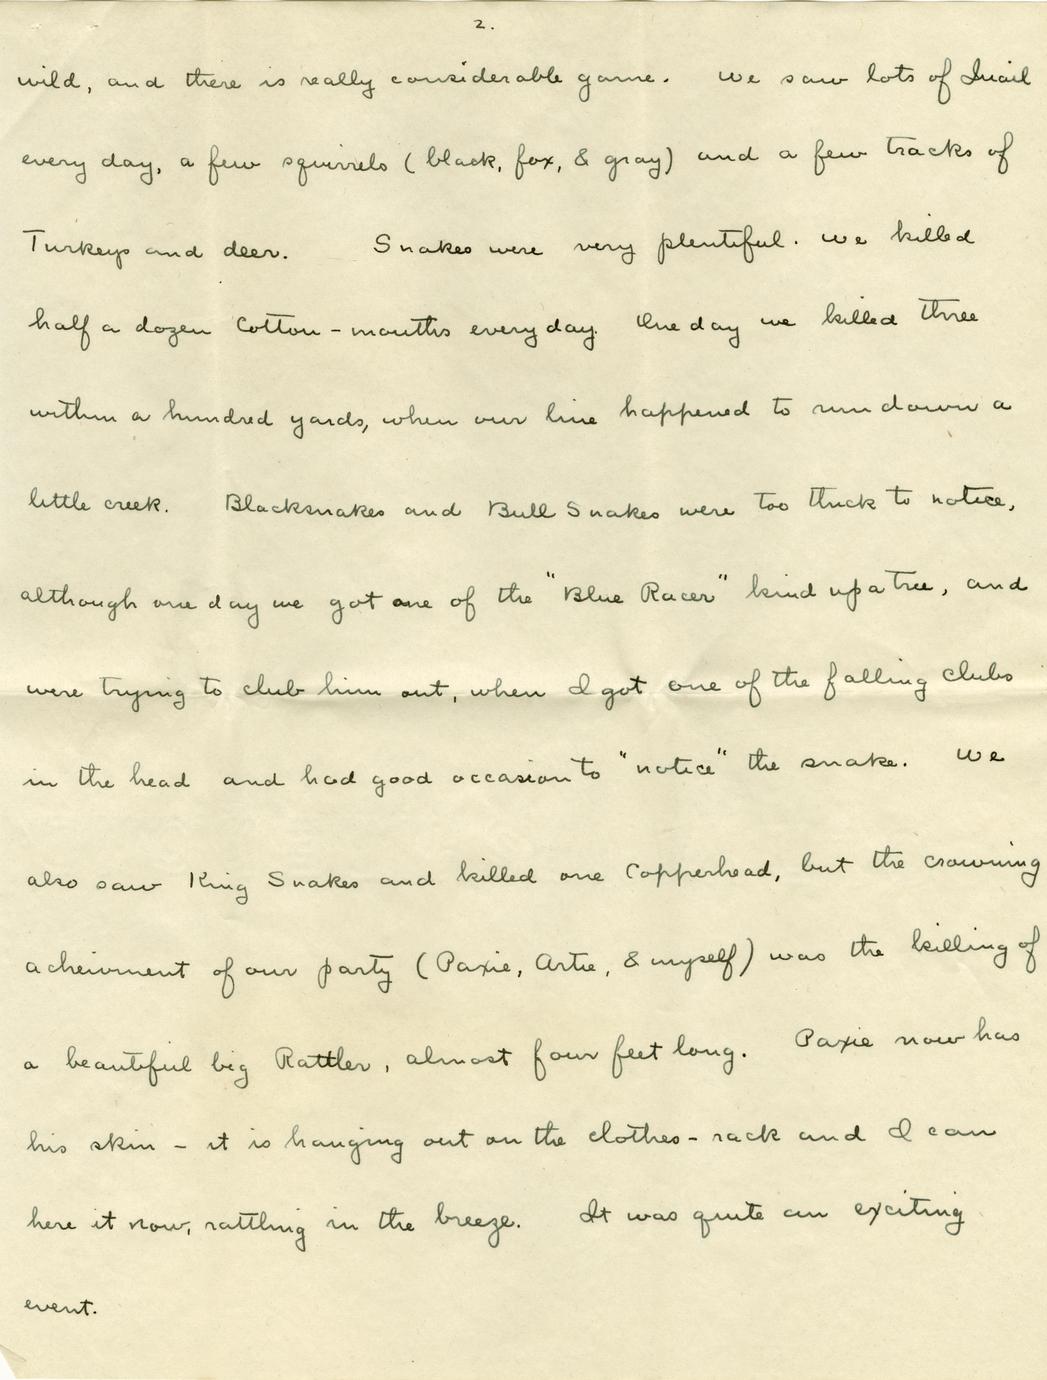 2.
wild, and there is really considerable game. We saw lots of Quail
every day, a few squirrels (black, fox, & gray) and a few tracks of
Turkeys and deer. Snakes were very plentiful. We killed
half a dozen Cotton-mouths every day. One day we killed three
within a hundred yards, when our line happened to run down a
little creek. Blacksnakes and Bull Snakes were too thick to notice,
although one day we got one of the "Blue Racer" kind up a tree, and
were trying to club him out, when I got one of the falling clubs
in the head and had good occasion to "notice" the snake. We
also saw King Snakes and killed one Copperhead, but the crowning
acheivment of our party (Paxie, Artie, & myself) was the killing of
a beautiful big Rattler, almost four feet long. Paxie now has
his skin - it is hanging out on the clothes-rack and I can
here it now, rattling in the breeze. It was quite an exciting
event.